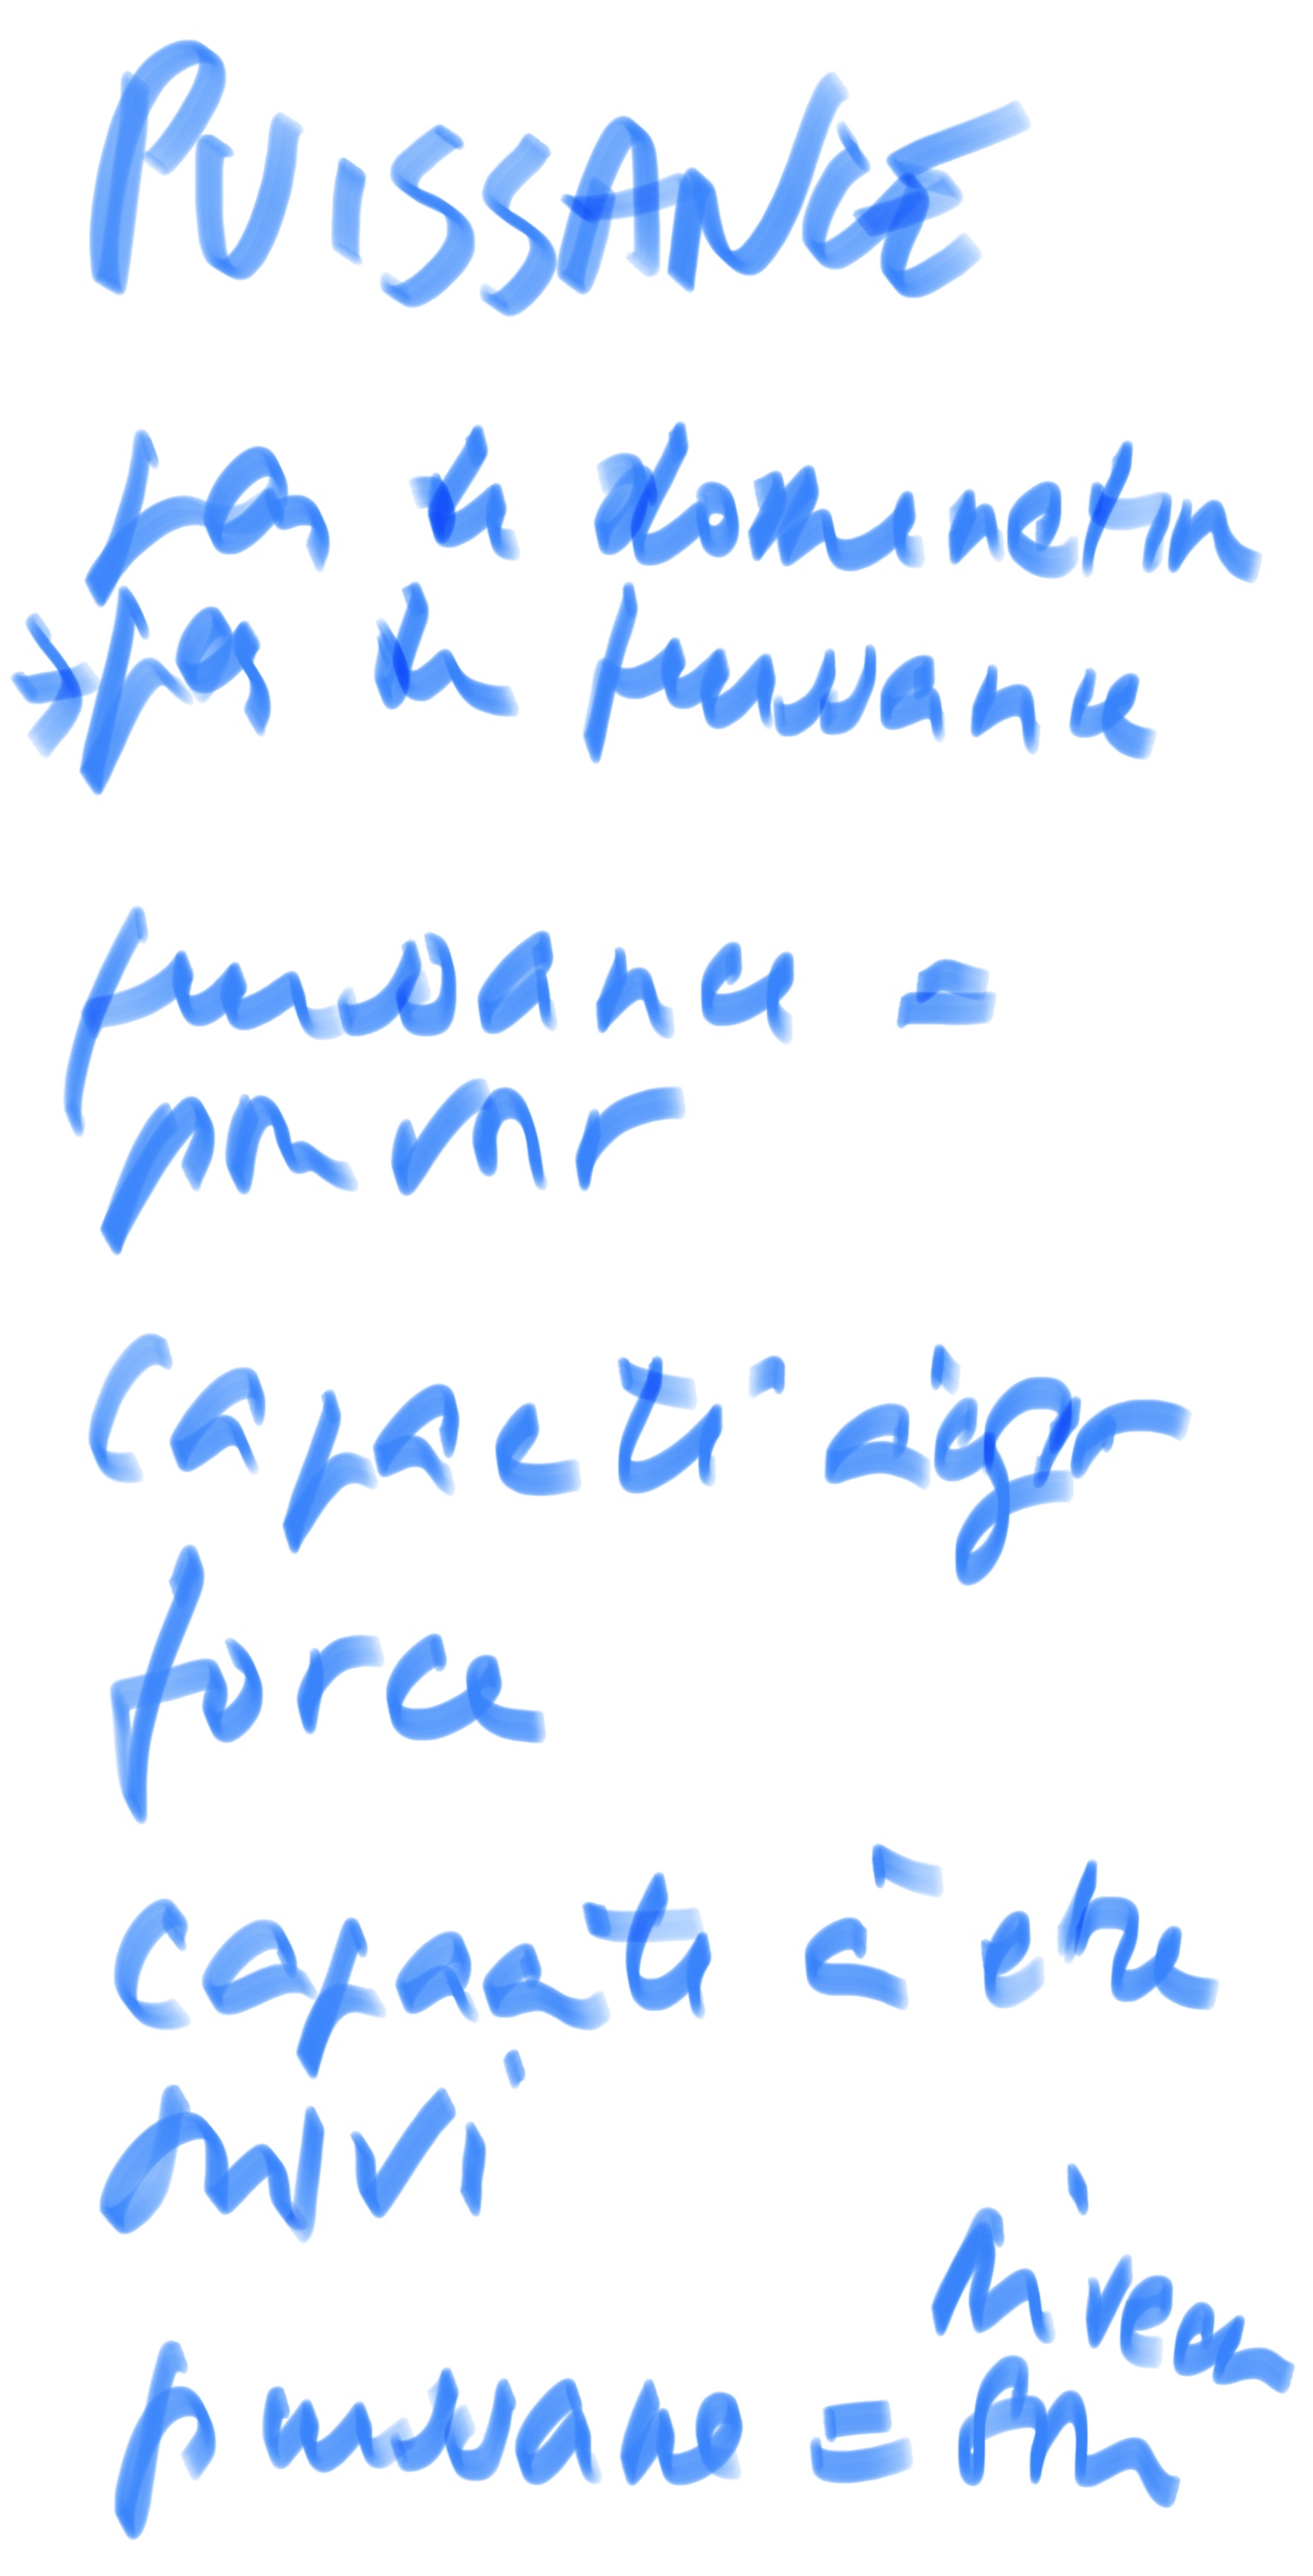 PUISSANCE
pas de domination
→ pas de puissance
puissance =
pouvoir
Capacité à agir
force
capacité à être
suivi
niveau
puissance =